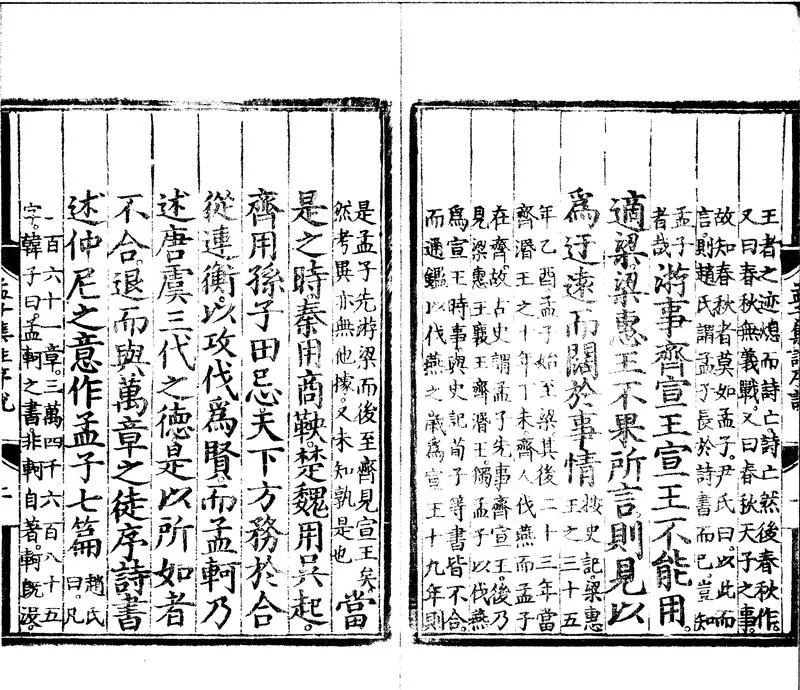 王者之迹熄而詩亡詩亡然後春秋作。
又曰春秋無義戰。又曰春秋天子之事。
故知春秋者莫如孟子。尹氏曰。以此而
言則趙氏謂孟子長於詩書而已。豈知
孟子
者哉
游事齊宣王宣王不能用。
適梁。梁惠王不果所言。則見以
爲迂遠而闊於事情
按史記。梁惠
王之三十五
年乙酉孟子始至梁其後二十三年當
齊湣王之十年丁未齊人伐燕而孟子
在齊。故古史謂孟子先事齊宣王。後乃
見梁惠王襄王齊湣王獨孟子以伐燕
爲宣王時事與史記荀子等書皆不合。
而通鑑以伐燕之歲爲宣王十九年則
是孟子先游梁而後至齊見宣王矣。
然考異亦無他據。又未知孰是也
當
是之時。秦用商鞅。楚魏用吳起。
齊用孫子田忌天下方務於合
從連衡。以攻伐爲賢。而孟軻乃
述唐虞三代之德。是以所如者
不合。退而與萬章之徒序詩書
述仲尼之意作孟子七篇
趙氏
曰。凡
二百六十一章。三萬四千六百八十五
字。韓子曰。孟軻之書非軻自著。軻旣沒。